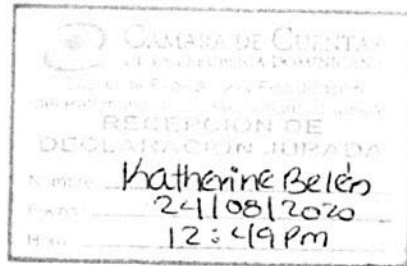 CAMARA DE CUENTAS
DE LA REPUBLICA DOMINICANA
RECEPCION DE
DECLARACION JURADA
Nombre Katherine Belén
Fecha 24/08/2020
Hora 12:49 Pm